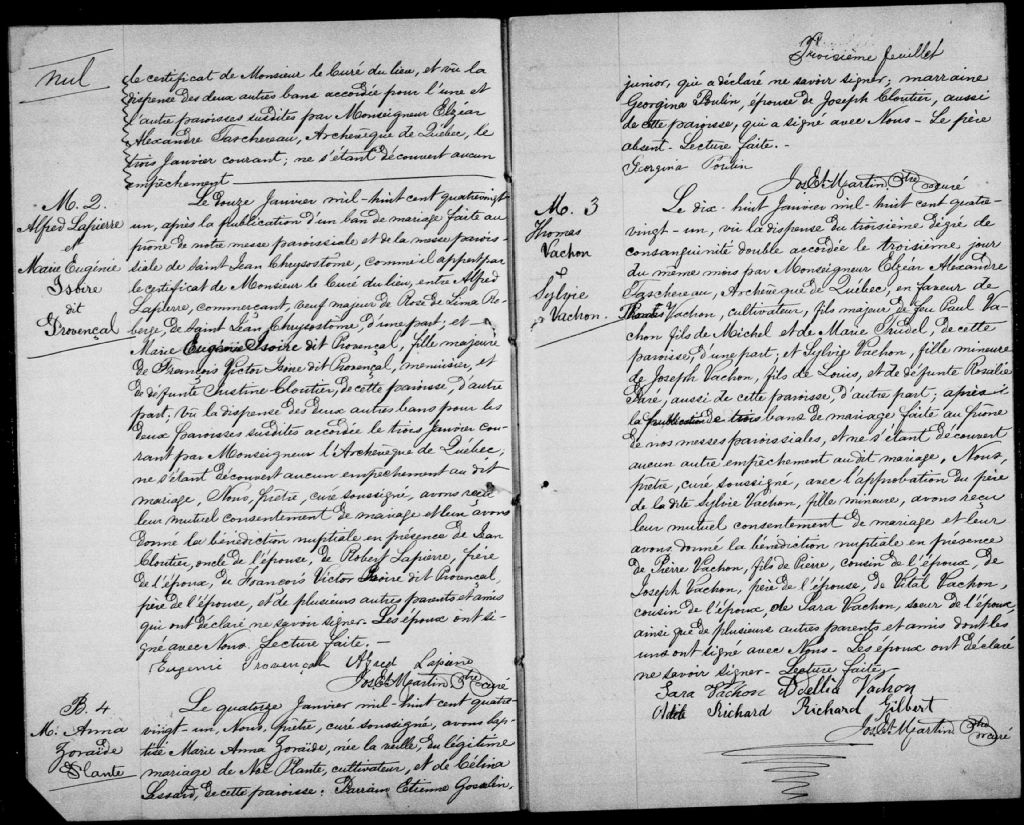 nul
le certificat de Monsieur le Curé du lieu, et vu la
dispense des deux autres bans accordée pour l'une et
l'autre paroisses susdites par Monseigneur Elzéar
Alexandre Taschereau, Archevêque de Québec, le
trois Janvier courant; ne s'étant découvert aucun
empêchement
M. 2.
Alfred Lapierre
et
Marie Eugénie
Isoire
dit
Provençal
Le douze Janvier mil-huit cent quatrevingt-
un, après la publication d'un ban de mariage faite au
prône de notre messe paroissiale et de la messe parois-
siale de Saint Jean Chrysostôme, comme il appert par
le certificat de Monsieur le Curé du lieu, entre Alfred
Lapierre, commerçant, veuf majeur de Rose de Lima Ro-
berge, de Saint Jean Chrysostôme, d'une part; et
Marie Eugénie Isoire dit Provençal, fille majeure
de François Victor Isoire dit Provençal, menuisier, et
de défunte Justine Cloutier, de cette paroisse, d'autre
part; vu la dispense des deux autres bans pour les
deux paroisses susdites accordée le trois Janvier cou-
rant par Monseigneur l'Archevêque de Québec;
ne s'étant découvert aucun empêchement au dit
mariage, Nous, prêtre, curé soussigné, avons reçu
leur mutuel consentement de mariage et leur avons
donné la bénédiction nuptiale en présence de Jean
Cloutier, oncle de l'épouse, de Robert Lapierre, frère
de l'époux, de François Victor Isoire dit Provençal,
père de l'épouse, et de plusieurs autres parents et amis
qui ont déclaré ne savoir signer. Les époux ont si-
gné avec Nous. Lecture faite.-
Eugenie Provençal Alfred Lapierre
Jos. Et. Martin Ptre curé
B. 4
M: Anna
Zoraïde
Plante
Le quatorze Janvier mil-huit cent quatre-
vingt-un, Nous, prêtre, curé soussigné, avons bap-
tisé Marie Anna Zoraïde, née la veille, du légitime
mariage de Noé Plante, cultivateur, et de Célina
Lessard, de cette paroisse: Parrain Etienne Gosselin,
Troisième feuillet
junior, qui a déclaré ne savoir signer; marraine
Georgina Poulin, épouse de Joseph Cloutier, aussi
de cette paroisse, qui a signé avec Nous- Le père
absent- Lecture faite.-
Georgina Poulin
Jos. Et. Martin Ptre curé
M. 3
Thomas
Vachon
&
Sylvie
Vachon.
Le dix-huit Janvier mil-huit cent quatre-
vingt-un, vu la dispense du troisième dégré de
consanguinité double accordée le troisième jour
du même mois par Monseigneur Elzéar Alexandre
Taschereau, Archevêque de Québec, en faveur de
Thomas Vachon, cultivateur, fils majeur de feu Paul Va-
chon fils de Michel et de Marie Trudel, de cette
paroisse, d'une part; et Sylvie Vachon, fille mineure
de Joseph Vachon, fils de Louis, et de défunte Rosalie
aussi de cette paroisse, d'autre part; après
la publication de trois bans de mariage faite au prône
de nos messes paroissiales, et ne s'étant découvert
aucun autre empêchement au dit mariage, Nous,
prêtre, curé soussigné, avec l'approbation du père
de la dite Sylvie Vachon, fille mineure, avons reçu
leur mutuel consentement de mariage et leur
avons donné la bénédiction nuptiale en présence
de Pierre Vachon, fils de Pierre, cousin de l'époux, de
Joseph Vachon, père de l'épouse, de Vital Vachon,
cousin de l'époux, de Sara Vachon, soeur de l'époux,
ainsi que de plusieurs autres parents et amis dont les
uns ont signé avec Nous- Les époux ont déclaré
ne savoir signer- Lecture faite.
Sara Vachon Vachon
Richard Richard Gilbert
Jos. Et. Martin Ptre curé